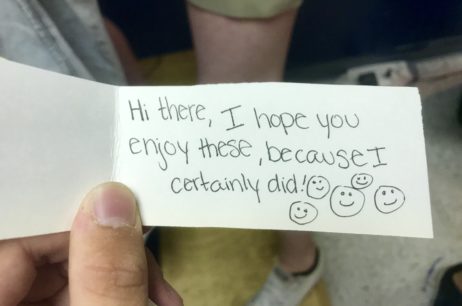 Hi there, I hope you
enjoy these, because I
certainly did!